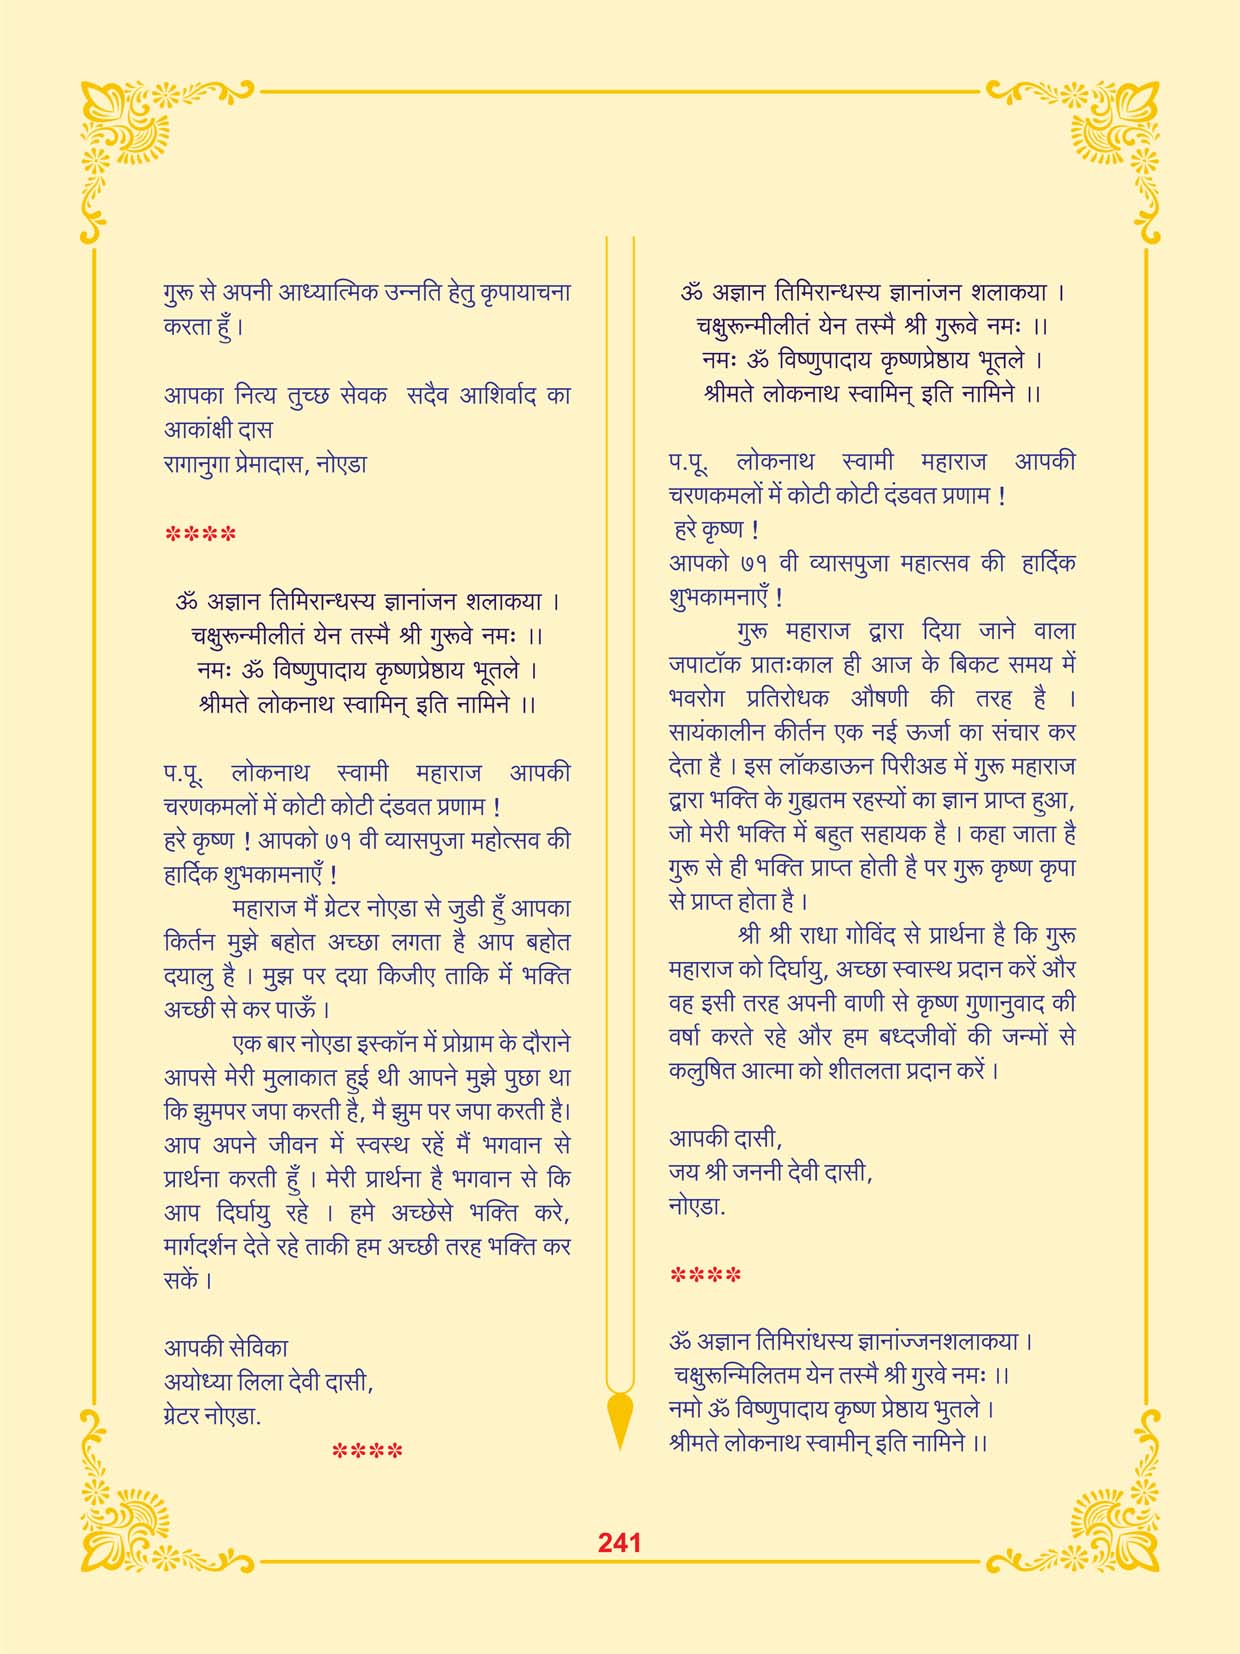 गुरू से अपनी आध्यात्मिक उन्नति हेतु कृपायाचना
करता हुँ ।
आपका नित्य तुच्छ सेवक सदैव आशिर्वाद का
आकांक्षी दास
रागानुगा प्रेमादास, नोएडा
****
ॐ अज्ञान तिमिरान्धस्य ज्ञानांजन शलाकया ।
चक्षुरून्मीलीतं येन तस्मै श्री गुरूवे नमः ।।
नमः ॐ विष्णुपादाय कृष्णप्रेष्ठाय भूतले ।
श्रीमते लोकनाथ स्वामिन् इति नामिने ।।
प.पू. लोकनाथ स्वामी महाराज आपकी
चरणकमलों में कोटी कोटी दंडवत प्रणाम !
हरे कृष्ण ! आपको ७१ वी व्यासपुजा महोत्सव की
हार्दिक शुभकामनाएँ !
महाराज मैं ग्रेटर नोएडा से जुडी हुँ आपका
किर्तन मुझे बहोत अच्छा लगता है आप बहोत
दयालु है । मुझ पर दया किजीए ताकि में भक्ति
अच्छी से कर पाऊँ ।
एक बार नोएडा इस्कॉन में प्रोग्राम के दौराने
आपसे मेरी मुलाकात हुई थी आपने मुझे पुछा था
कि झुमपर जपा करती है, मै झुम पर जपा करती है।
आप अपने जीवन में स्वस्थ रहें मैं भगवान से
प्रार्थना करती हुँ । मेरी प्रार्थना है भगवान से कि
आप दिर्घायु रहे । हमे अच्छेसे भक्ति करे,
मार्गदर्शन देते रहे ताकी हम अच्छी तरह भक्ति कर
सकें ।
आपकी सेविका
अयोध्या लिला देवी दासी,
ग्रेटर नोएडा.
****
ॐ अज्ञान तिमिरान्धस्य ज्ञानांजन शलाकया ।
चक्षुरून्मीलीतं येन तस्मै श्री गुरूवे नमः ।।
नमः ॐ विष्णुपादाय कृष्णप्रेष्ठाय भूतले ।
श्रीमते लोकनाथ स्वामिन् इति नामिने ।।
प.पू. लोकनाथ स्वामी महाराज आपकी
चरणकमलों में कोटी कोटी दंडवत प्रणाम !
हरे कृष्ण !
आपको ७१ वी व्यासपुजा महात्सव की हार्दिक
शुभकामनाएँ !
गुरू महाराज द्वारा दिया जाने वाला
जपाटॉक प्रातःकाल ही आज के बिकट समय में
भवरोग प्रतिरोधक औषणी की तरह है ।
सायंकालीन कीर्तन एक नई ऊर्जा का संचार कर
देता है । इस लॉकडाऊन पिरीअड में गुरू महाराज
द्वारा भक्ति के गुह्यतम रहस्यों का ज्ञान प्राप्त हुआ,
जो मेरी भक्ति में बहुत सहायक है । कहा जाता है
गुरू से ही भक्ति प्राप्त होती है पर गुरू कृष्ण कृपा
से प्राप्त होता है ।
श्री श्री राधा गोविंद से प्रार्थना है कि गुरू
महाराज को दिर्घायु, अच्छा स्वास्थ प्रदान करें और
वह इसी तरह अपनी वाणी से कृष्ण गुणानुवाद की
वर्षा करते रहे और हम बध्दजीवों की जन्मों से
कलुषित आत्मा को शीतलता प्रदान करें ।
आपकी दासी,
जय श्री जननी देवी दासी,
नोएडा.
****
ॐ अज्ञान तिमिरांधस्य ज्ञानांज्जनशलाकया ।
चक्षुरून्मिलितम येन तस्मै श्री गुरवे नमः ।।
नमो ॐ विष्णुपादाय कृष्ण प्रेष्ठाय भुतले ।
श्रीमते लोकनाथ स्वामीन् इति नामिने ।।
241